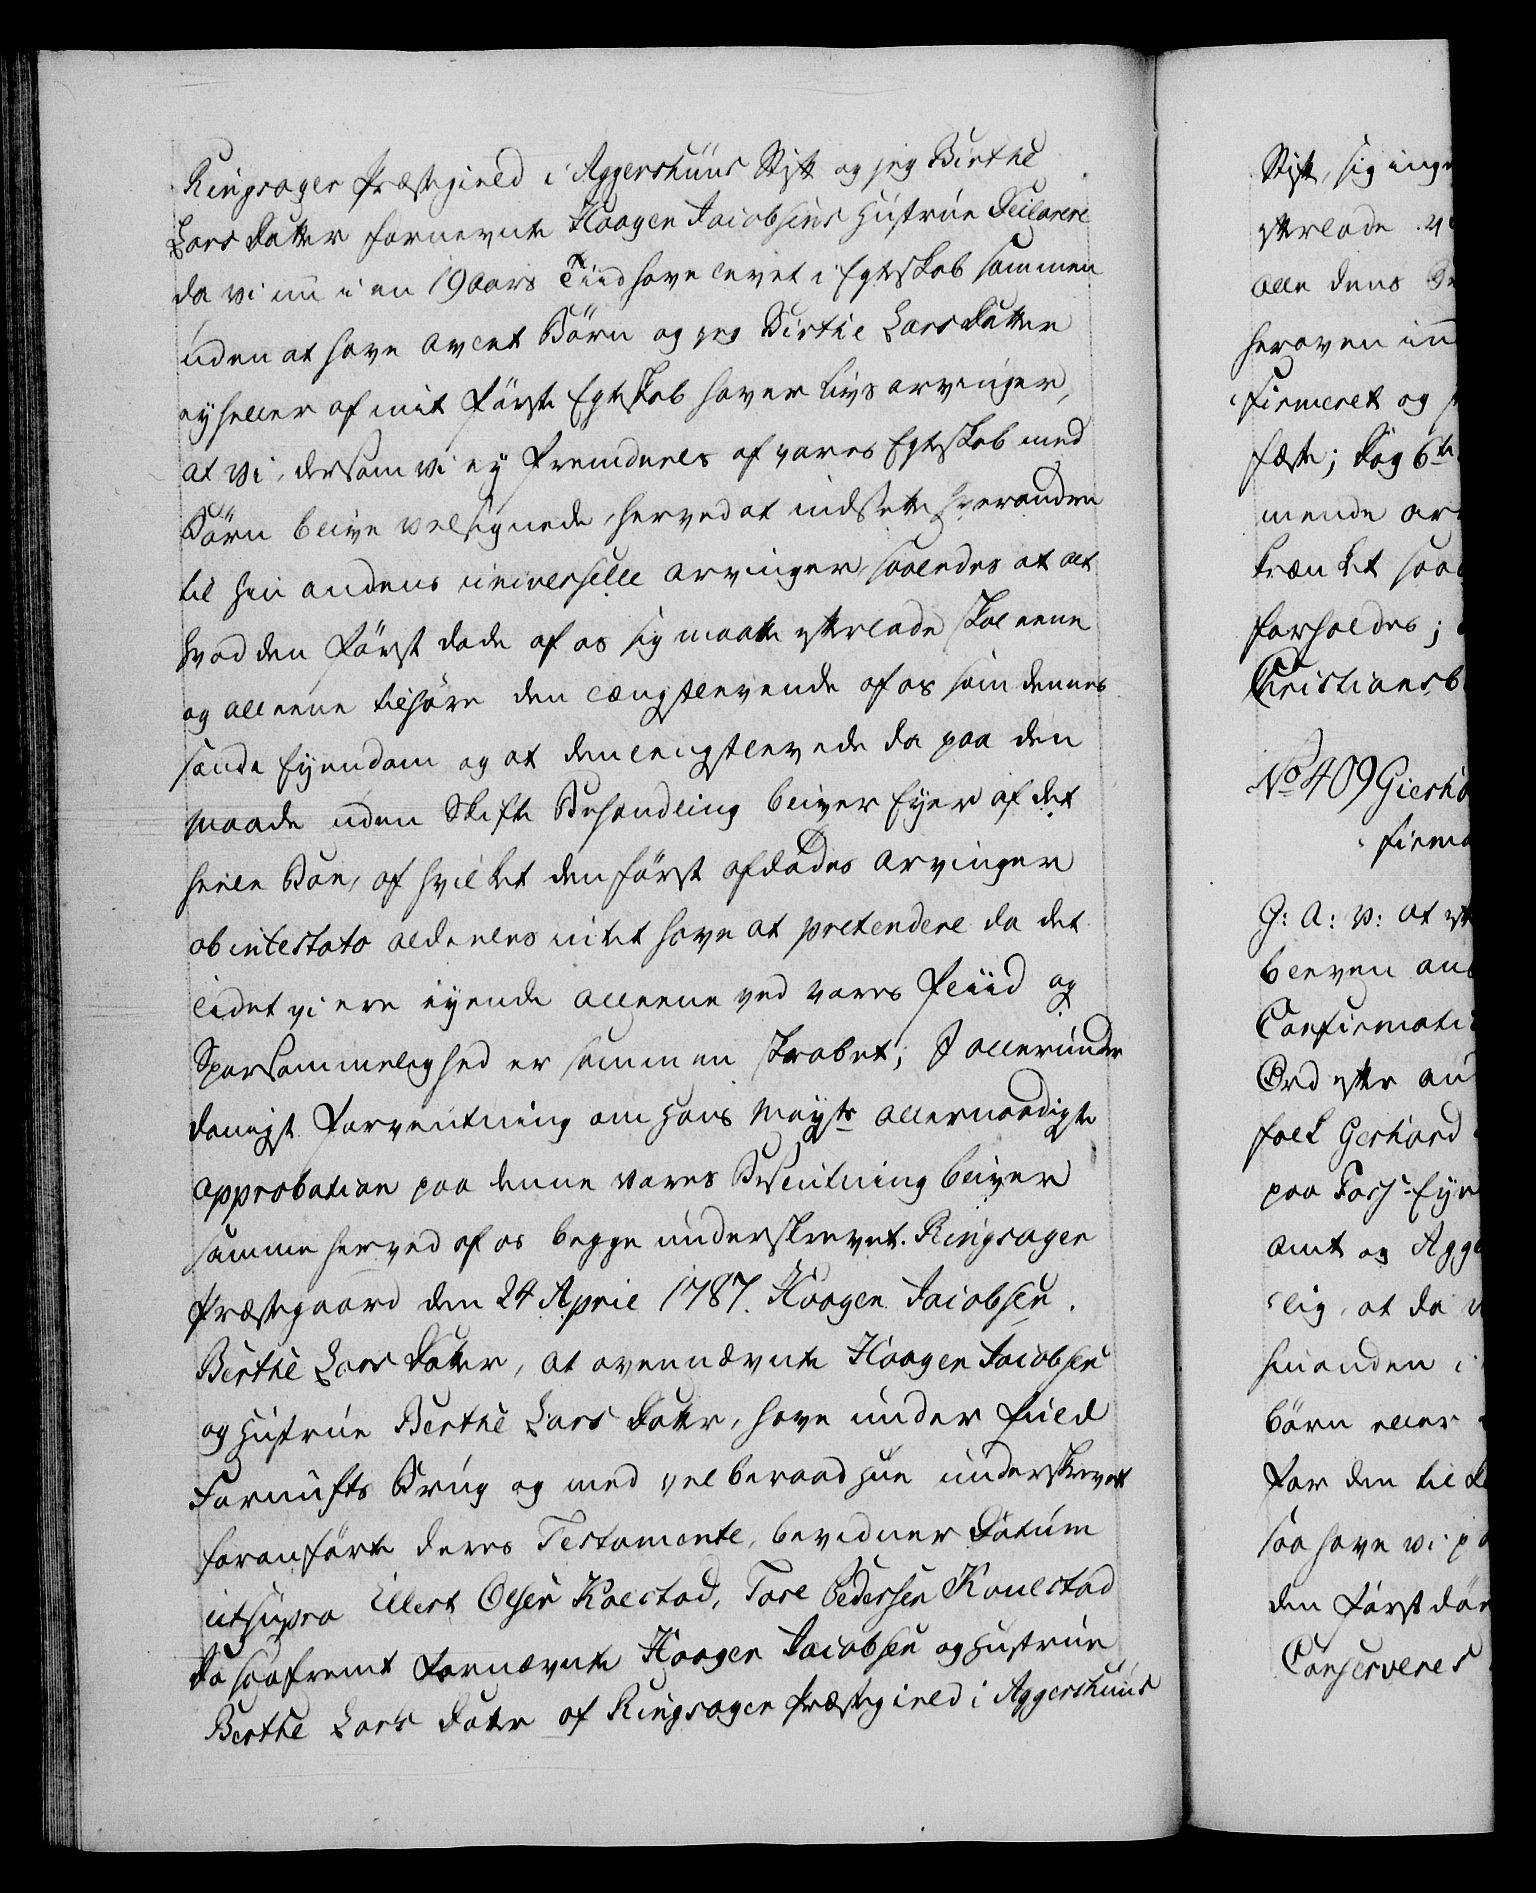 Ringsager Præstegield i Aggershuus Stift og jeg Birthe
Lars Datter fornevnte Haagen Jacobsens Hustrue Declarere
da vi nu i en 19 Aars Tiid have levet i Egteskab sammen
uden at have avlet Börn og jeg Birthe Lars Datter
ey heller af mit första Egteskab haver Livs arvinger,
at vi, dersom vi ey fremdeeles af vores Egteskab med
Börn blive velsignede, herved at indsette hverandre
til hin andens universelle Arvinger, saaledes at alt
hvad den först döde af os sig maatte efterlade skal eene
og alleene tilhöre den længstlevende af os som dennes
sande Eyendom og at den lengstlevede da paa den
Maade uden Skifte Behandling bliver Eyer af det
heele Boe, af hvilket den först afdödes Arvinger
ab intestato aldeeles intet have at pretendere da det
lidet vi ere eyende alleene ved vores Fliid og
Sparsommelighed er sammen skrabet; I allerunder
danigst Forventning om Hans Mayts allernaadigste
Approbation paa denne vores Beslutning bliver
samme herved af os begge underskrevet. Ringsager
Præstegaard den 24 April 1787. Haagen Jacobsen.
Birthe Lars Datter, at ovennævnte Haagen Jacobsen
og Hustrue Berthe Lars Datter, have under fuld
Fornufts Brug og med vel beraad Hue underskrevet
foranförte deres Testamente, bevidner Datum
utsupra Ellert Olsen Kolstad, Tore Pedersen Kaulstad
Da saafremt fornævnte Haagen Jacobsen og Hustrue
Berthe Lars Datter af Ringsager Præstegield i Aggershuus
Stift, sig inge
efterlade
alle dens
heroven in
firmeret og
fæste; Dog 6te
mende ar
krænket saa
forholdes;
Christiansb
No 409 Gierh
firma
G: A: V: at
bleven an
Confirmati
Ord efter an
folk Gerhard
paa Foss Eye
Amt og Agge
lig, at da
hinanden i
börn eller
for den til
saa have vi p
den först dö
Conserveres